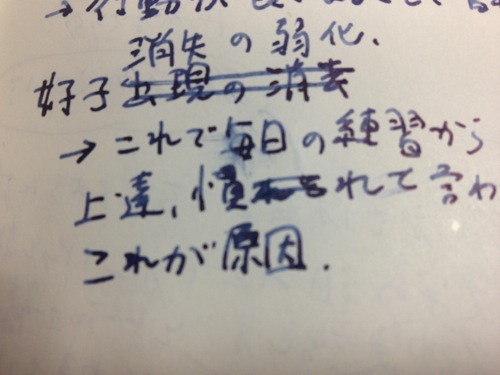 → 行動が
消失の弱化.
好子 出現の消去
→ これで毎日の練習から
上達、慣れて言わ
これが原因.